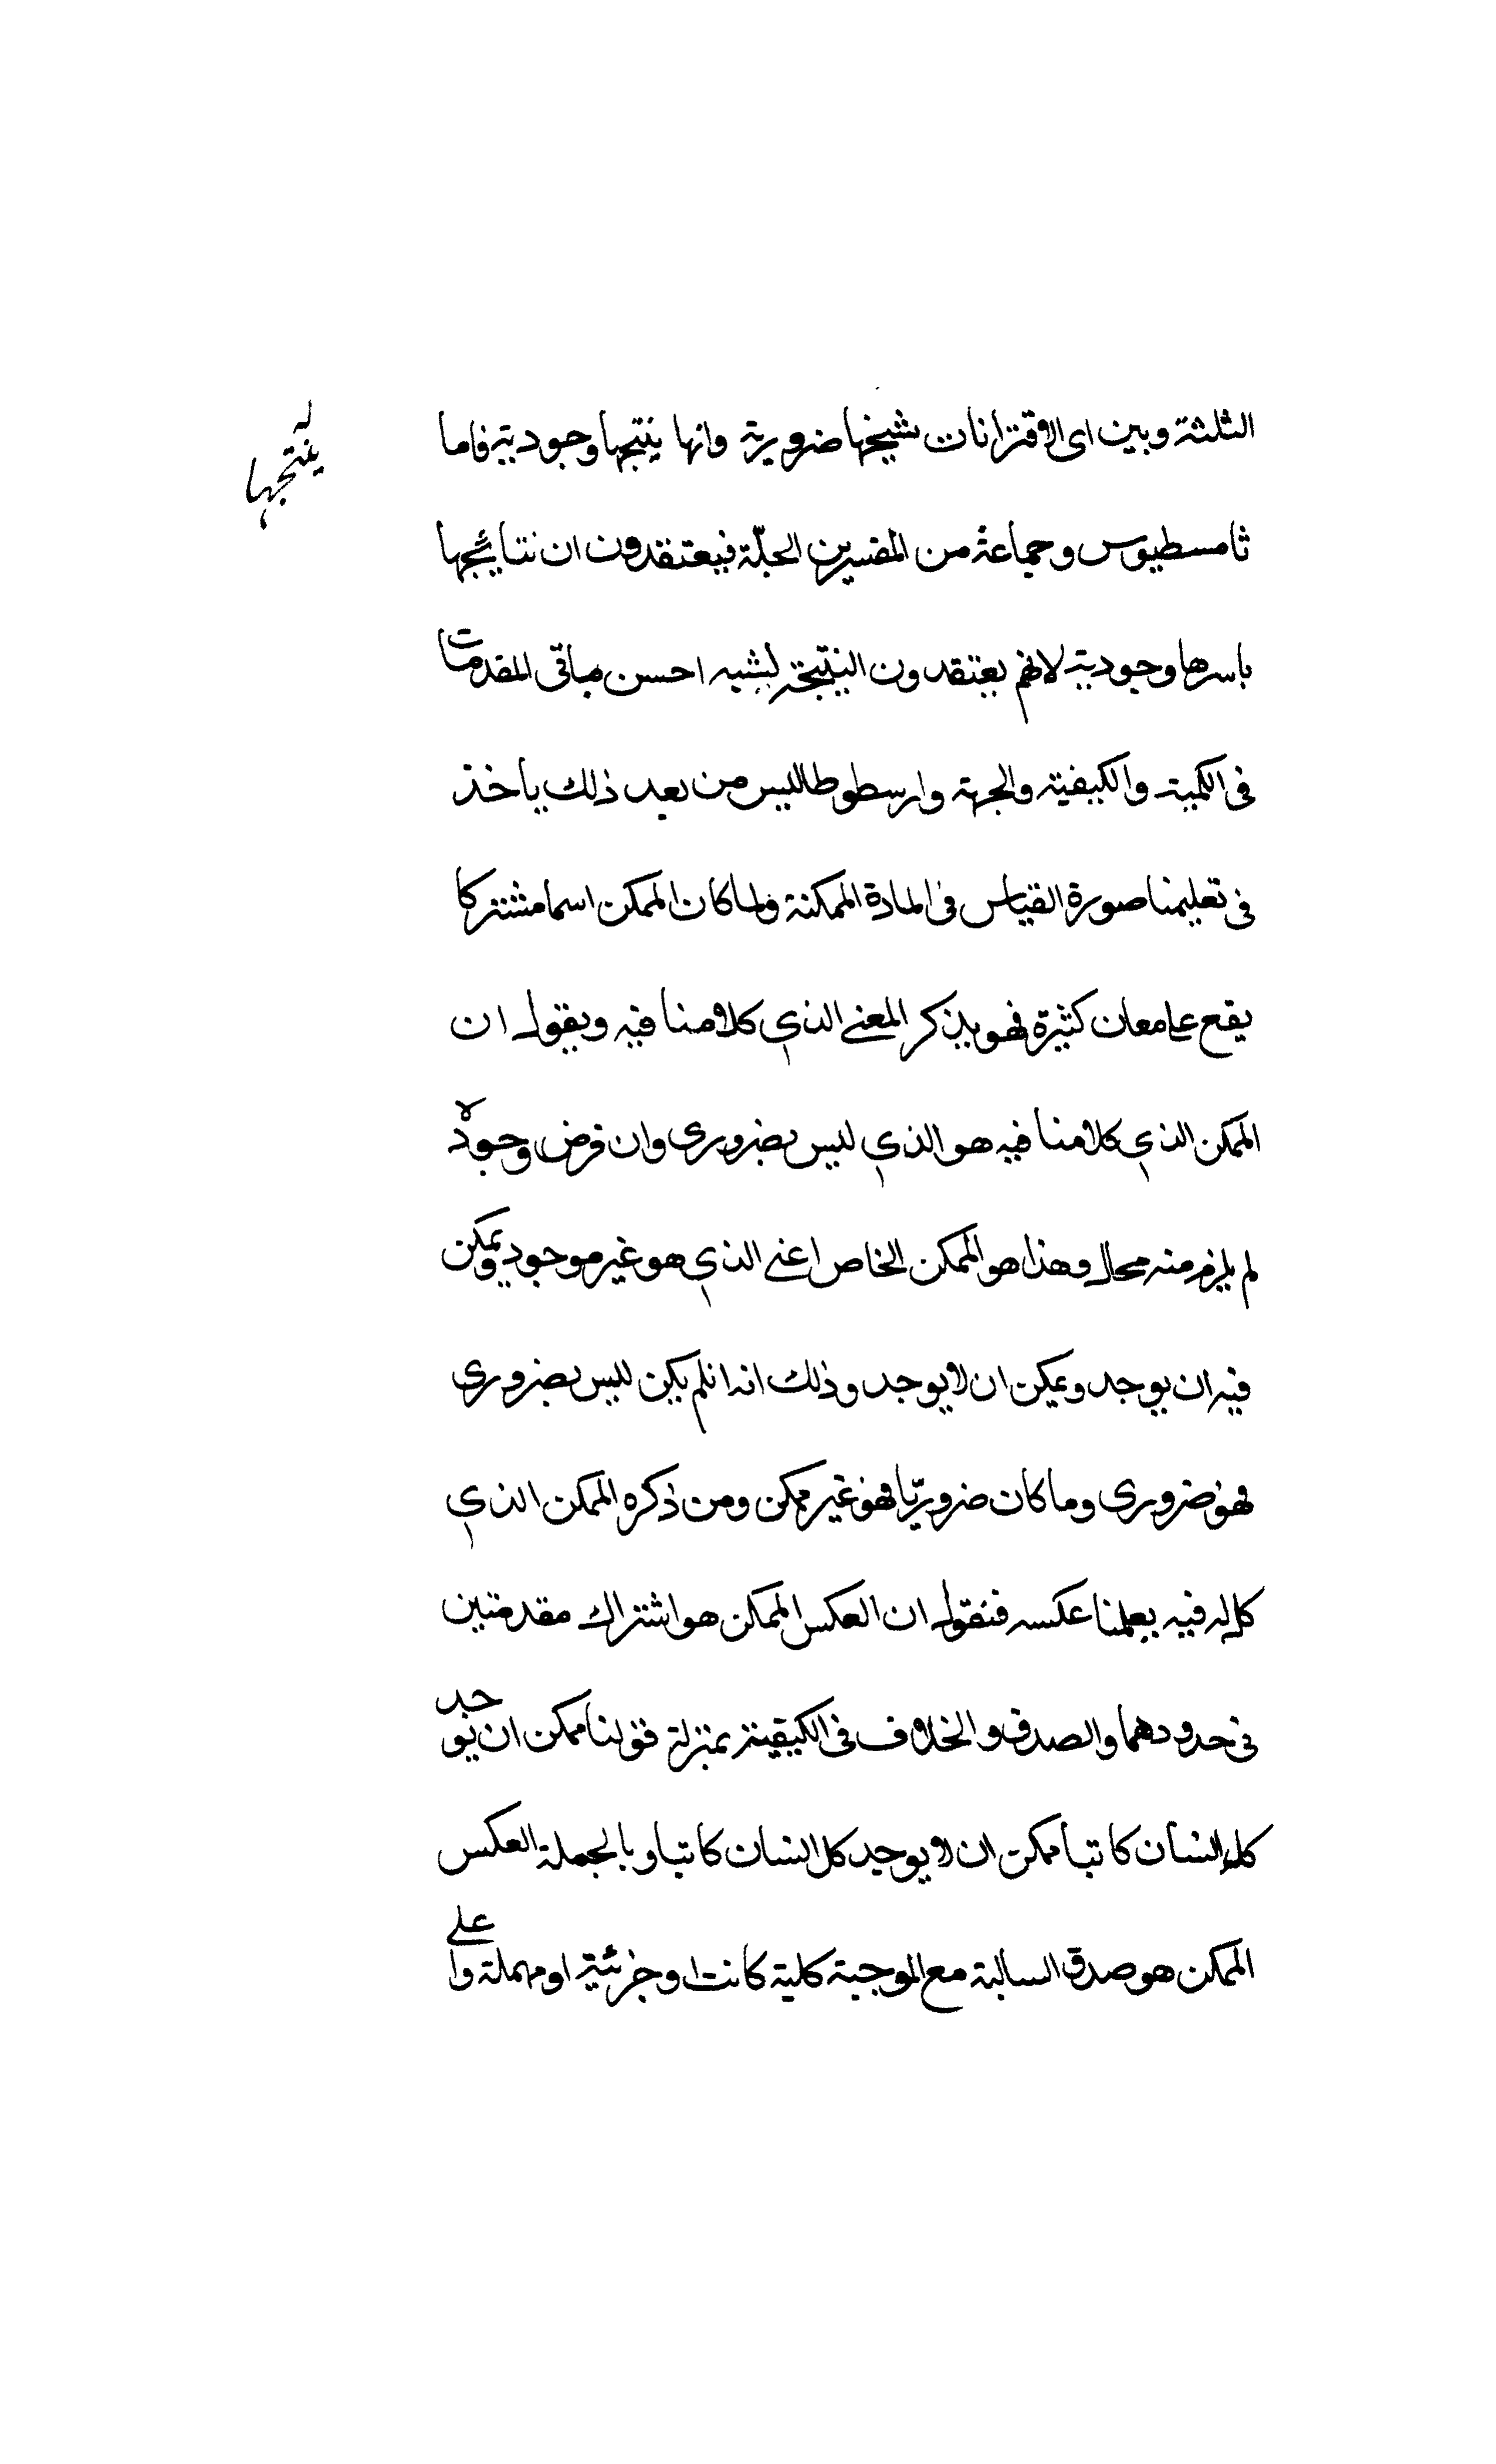 الثلثة وبين اى الاقترانات نتيجها ضرورية وانها ينتجها وجودية فاما
ينتجها
ثامسطيوس وجماعة من المفسرين الجلّة فيعتقدون ان نتايجها
باسرها وجودية لانهم يعتقدون النتيجة لشبه احسن مباقى المقدمات
فى الكمية والكيفية والجهة وارسطوطاليس من بعد ذلك ياخذ
فى تعليمنا صورة القياس فى المادة الممكنة ولما كان الممكن اسما مشتركا
يقع عا معان كثيرة فهو يذكر المعنى الذي كلامنا فيه ويقول ان
الممكن الذي كلامنا فيه هو الذي ليس بضرورى وان فرض وجوده
لم يلزم منه محال وهذا هو الممكن الخاص اعنى الذي هو غير موجود ويمكن
فيه ان يوجد ويمكن ان لا يوجد وذلك انه انلم يكن ليس بضرورى
فهو ضرورى وما كان ضروريّا فهو غير ممكن ومن ذكره الممكن الذي
كلامه فيه يعلمنا عكسه فنقول ان العكس الممكن هو اشتراك مقدمتين
فى حدودهما والصدق والخلاف فى الكيفية بمنزلة قولنا ممكن ان يوجد
كل انسان كاتبا ممكن ان لا يوجد كل انسان كاتبا وبالجملة العكس
الممكن هو صدق السالبة مع الموجبة كلية كانت او جزئية او مهملة وا على